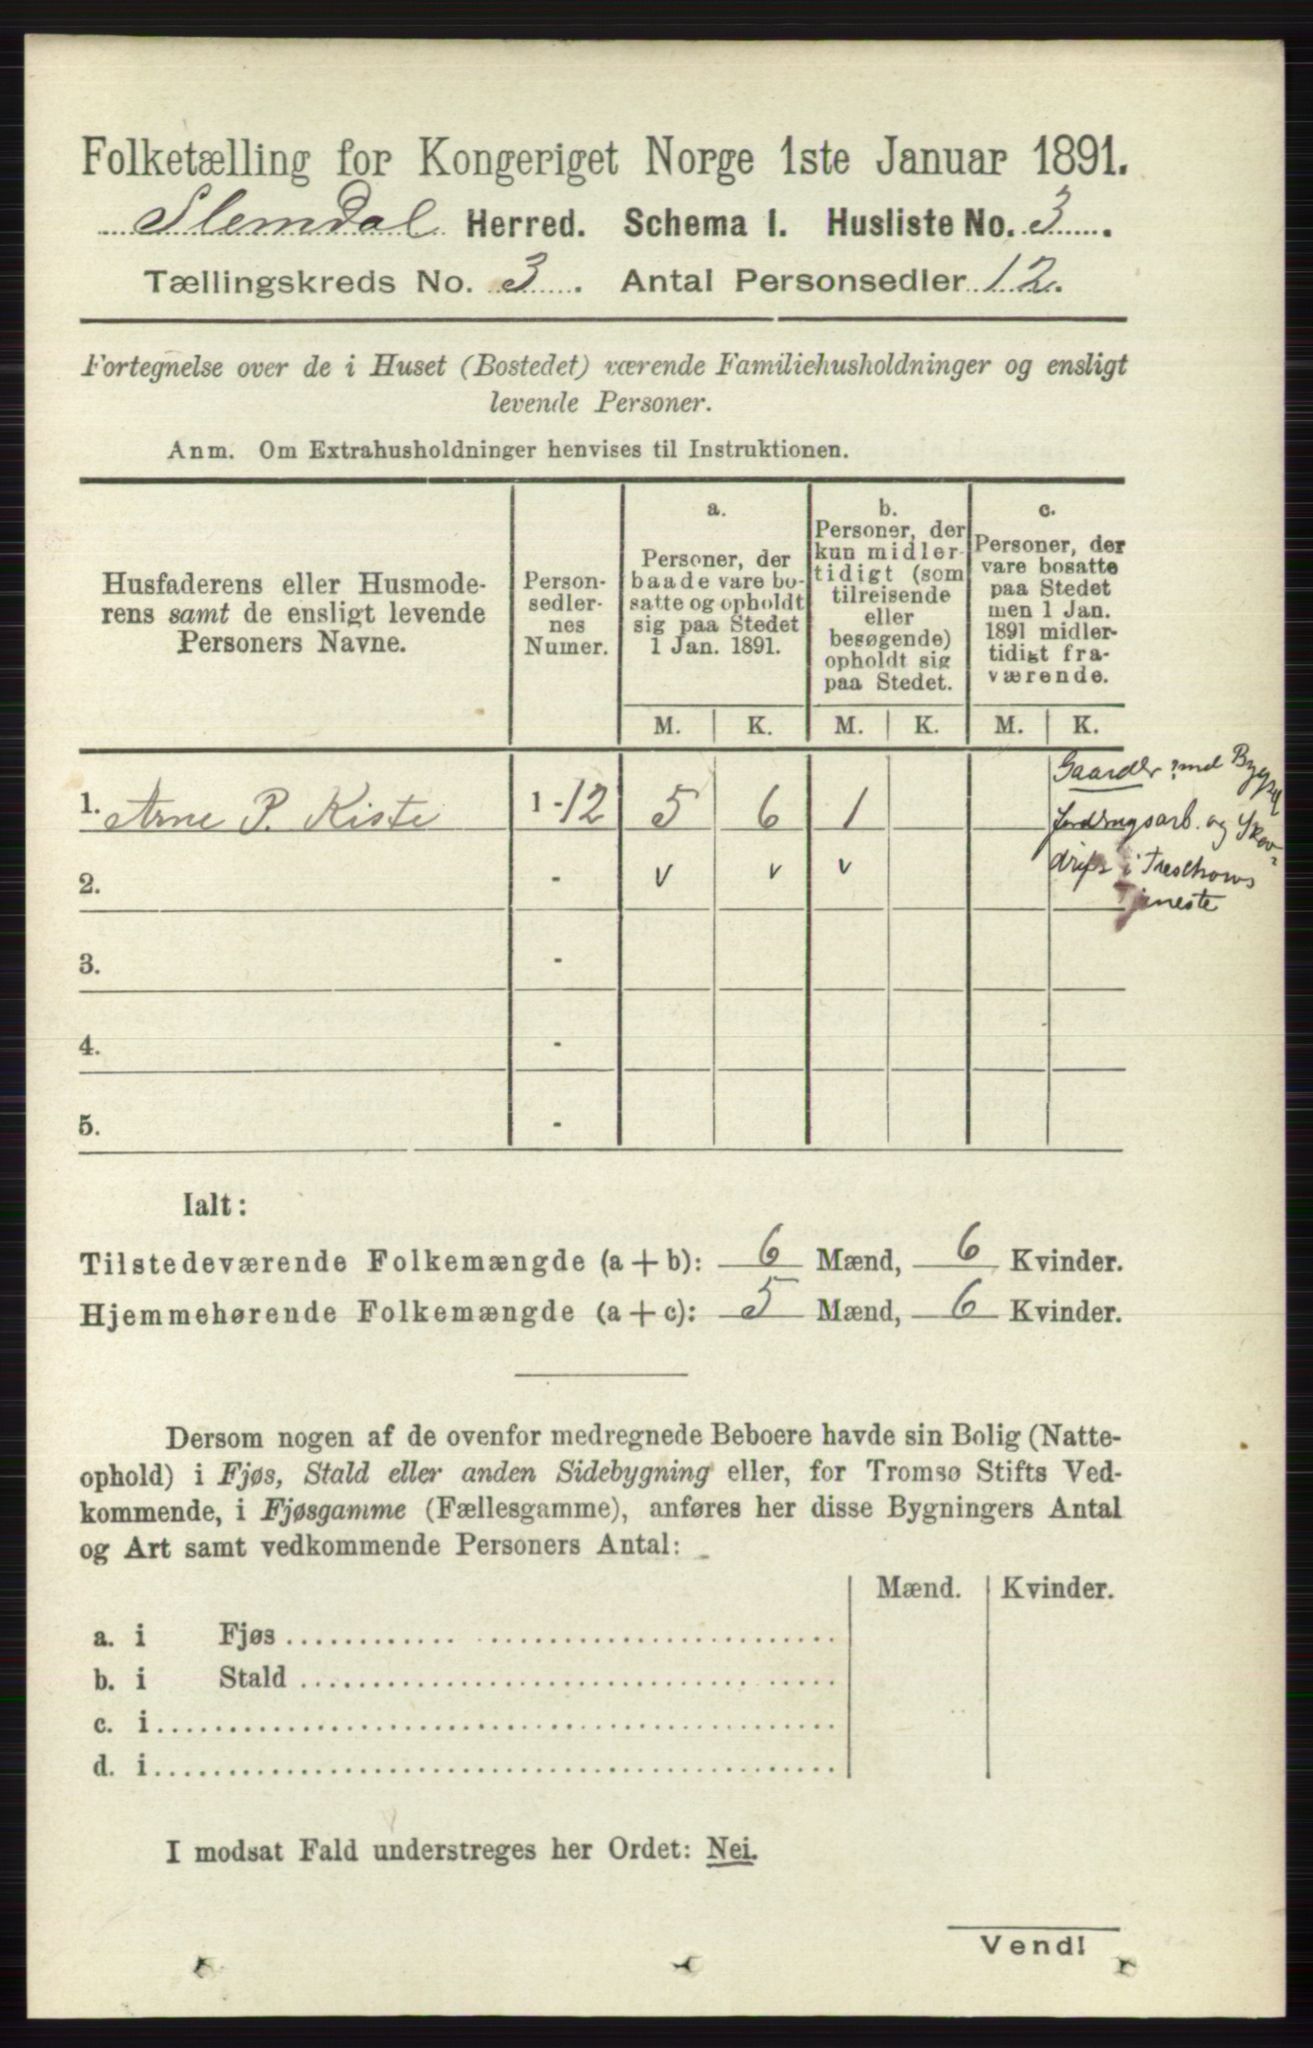 Folketælling for Kongeriget Norge 1ste Januar 1891.
Slemdal Herred. Schema I. Husliste No. 3.
Tællingskreds No. 3. Antal Personsedler 12.
Fortegnelse over de i Huset (Bostedet) værende Familiehusholdninger og ensligt
levende Personer.
Anm. Om Extrahusholdninger henvises til Instruktionen.
Husfaderens eller Husmoderens samt de ensligt levende Personers Navne.
Personsedlernes Numer.
a.
Personer, der
baade vare bo-
satte og opholdt
sig paa Stedet
1 Jan. 1891.
b.
Personer, der
kun midler-
tidigt (som
tilreisende
eller
besøgende)
opholdt sig
paa Stedet.
c.
Personer, der
vare bosatte
paa Stedet
men 1 Jan.
1891 midler-
tidigt fra-
værende.
M. K. M. K. M. K.
1. Arne P. Kiste 1-12 5 6 1
Gaardbr med Bygsel
Jorddyrkngsarb. og Skov-
drift i Treschows
Tjeneste
2. - v v v
3. -
4. -
5. -
Ialt:
Tilstedeværende Folkemængde (a + b): 6 Mænd, 6 Kvinder.
Hjemmehørende Folkemængde (a + c): 5 Mænd, 6 Kvinder.
Dersom nogen af de ovenfor medregnede Beboere havde sin Bolig (Natte-
ophold) i Fjøs, Stald eller anden Sidebygning eller, for Tromsø Stifts Ved-
kommende, i Fjøsgamme (Fællesgamme), anføres her disse Bygningers Antal
og Art samt vedkommende Personers Antal:
Mænd. Kvinder.
a. i Fjøs
b. i Stald
c. i
d. i
I modsat Fald understreges her Ordet: Nei.
Vend!